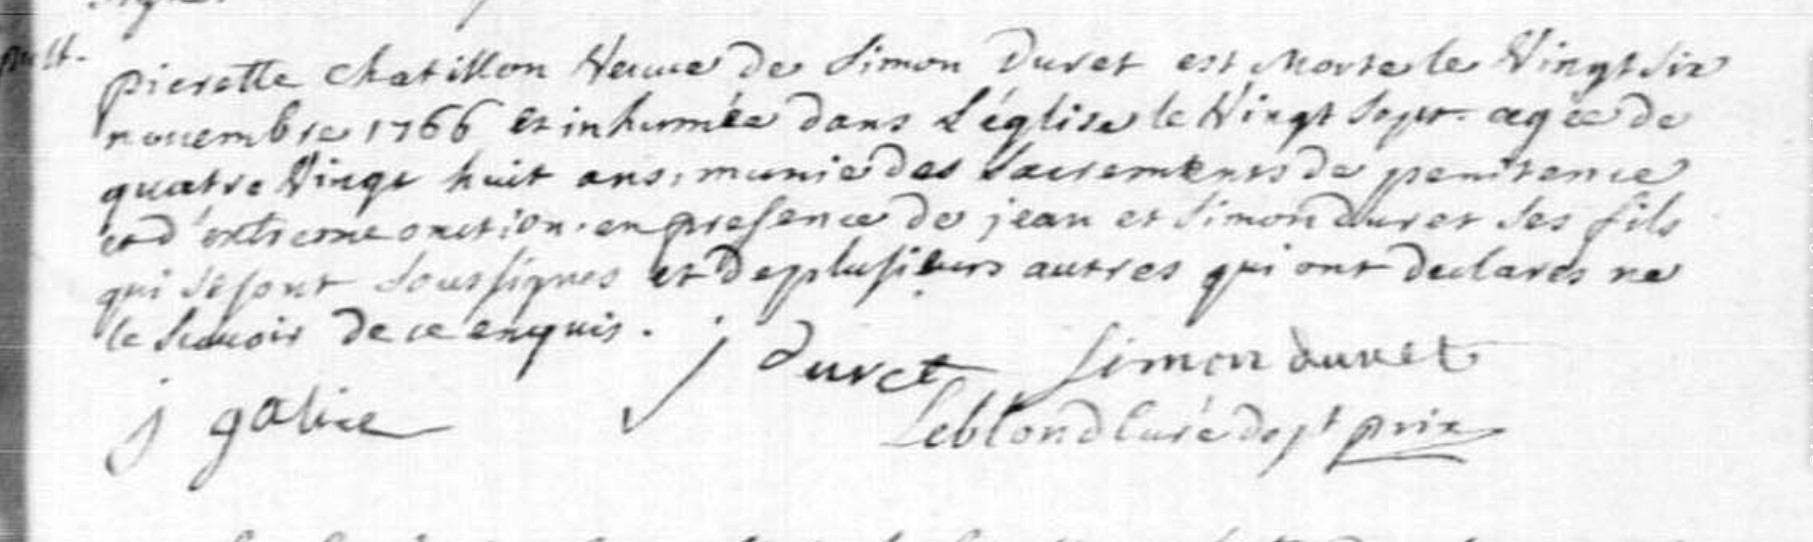 pierette chatillon Veuve de Simon Duret est Morte le Vingt Six
novembre 1766 et inhumée dans L'église le Vingt Sept. agée de
quatre Vingt huit ans, munie des Sacrements de penitence
et d'extreme onction. en presence de jean et Simon duret Ses fils
qui se sont Soussignes et de plusieurs autres qui ont declarés ne
le Scavoir de ce enquis.
j duret Simon duret
j galice
Leblond Curé de st prix